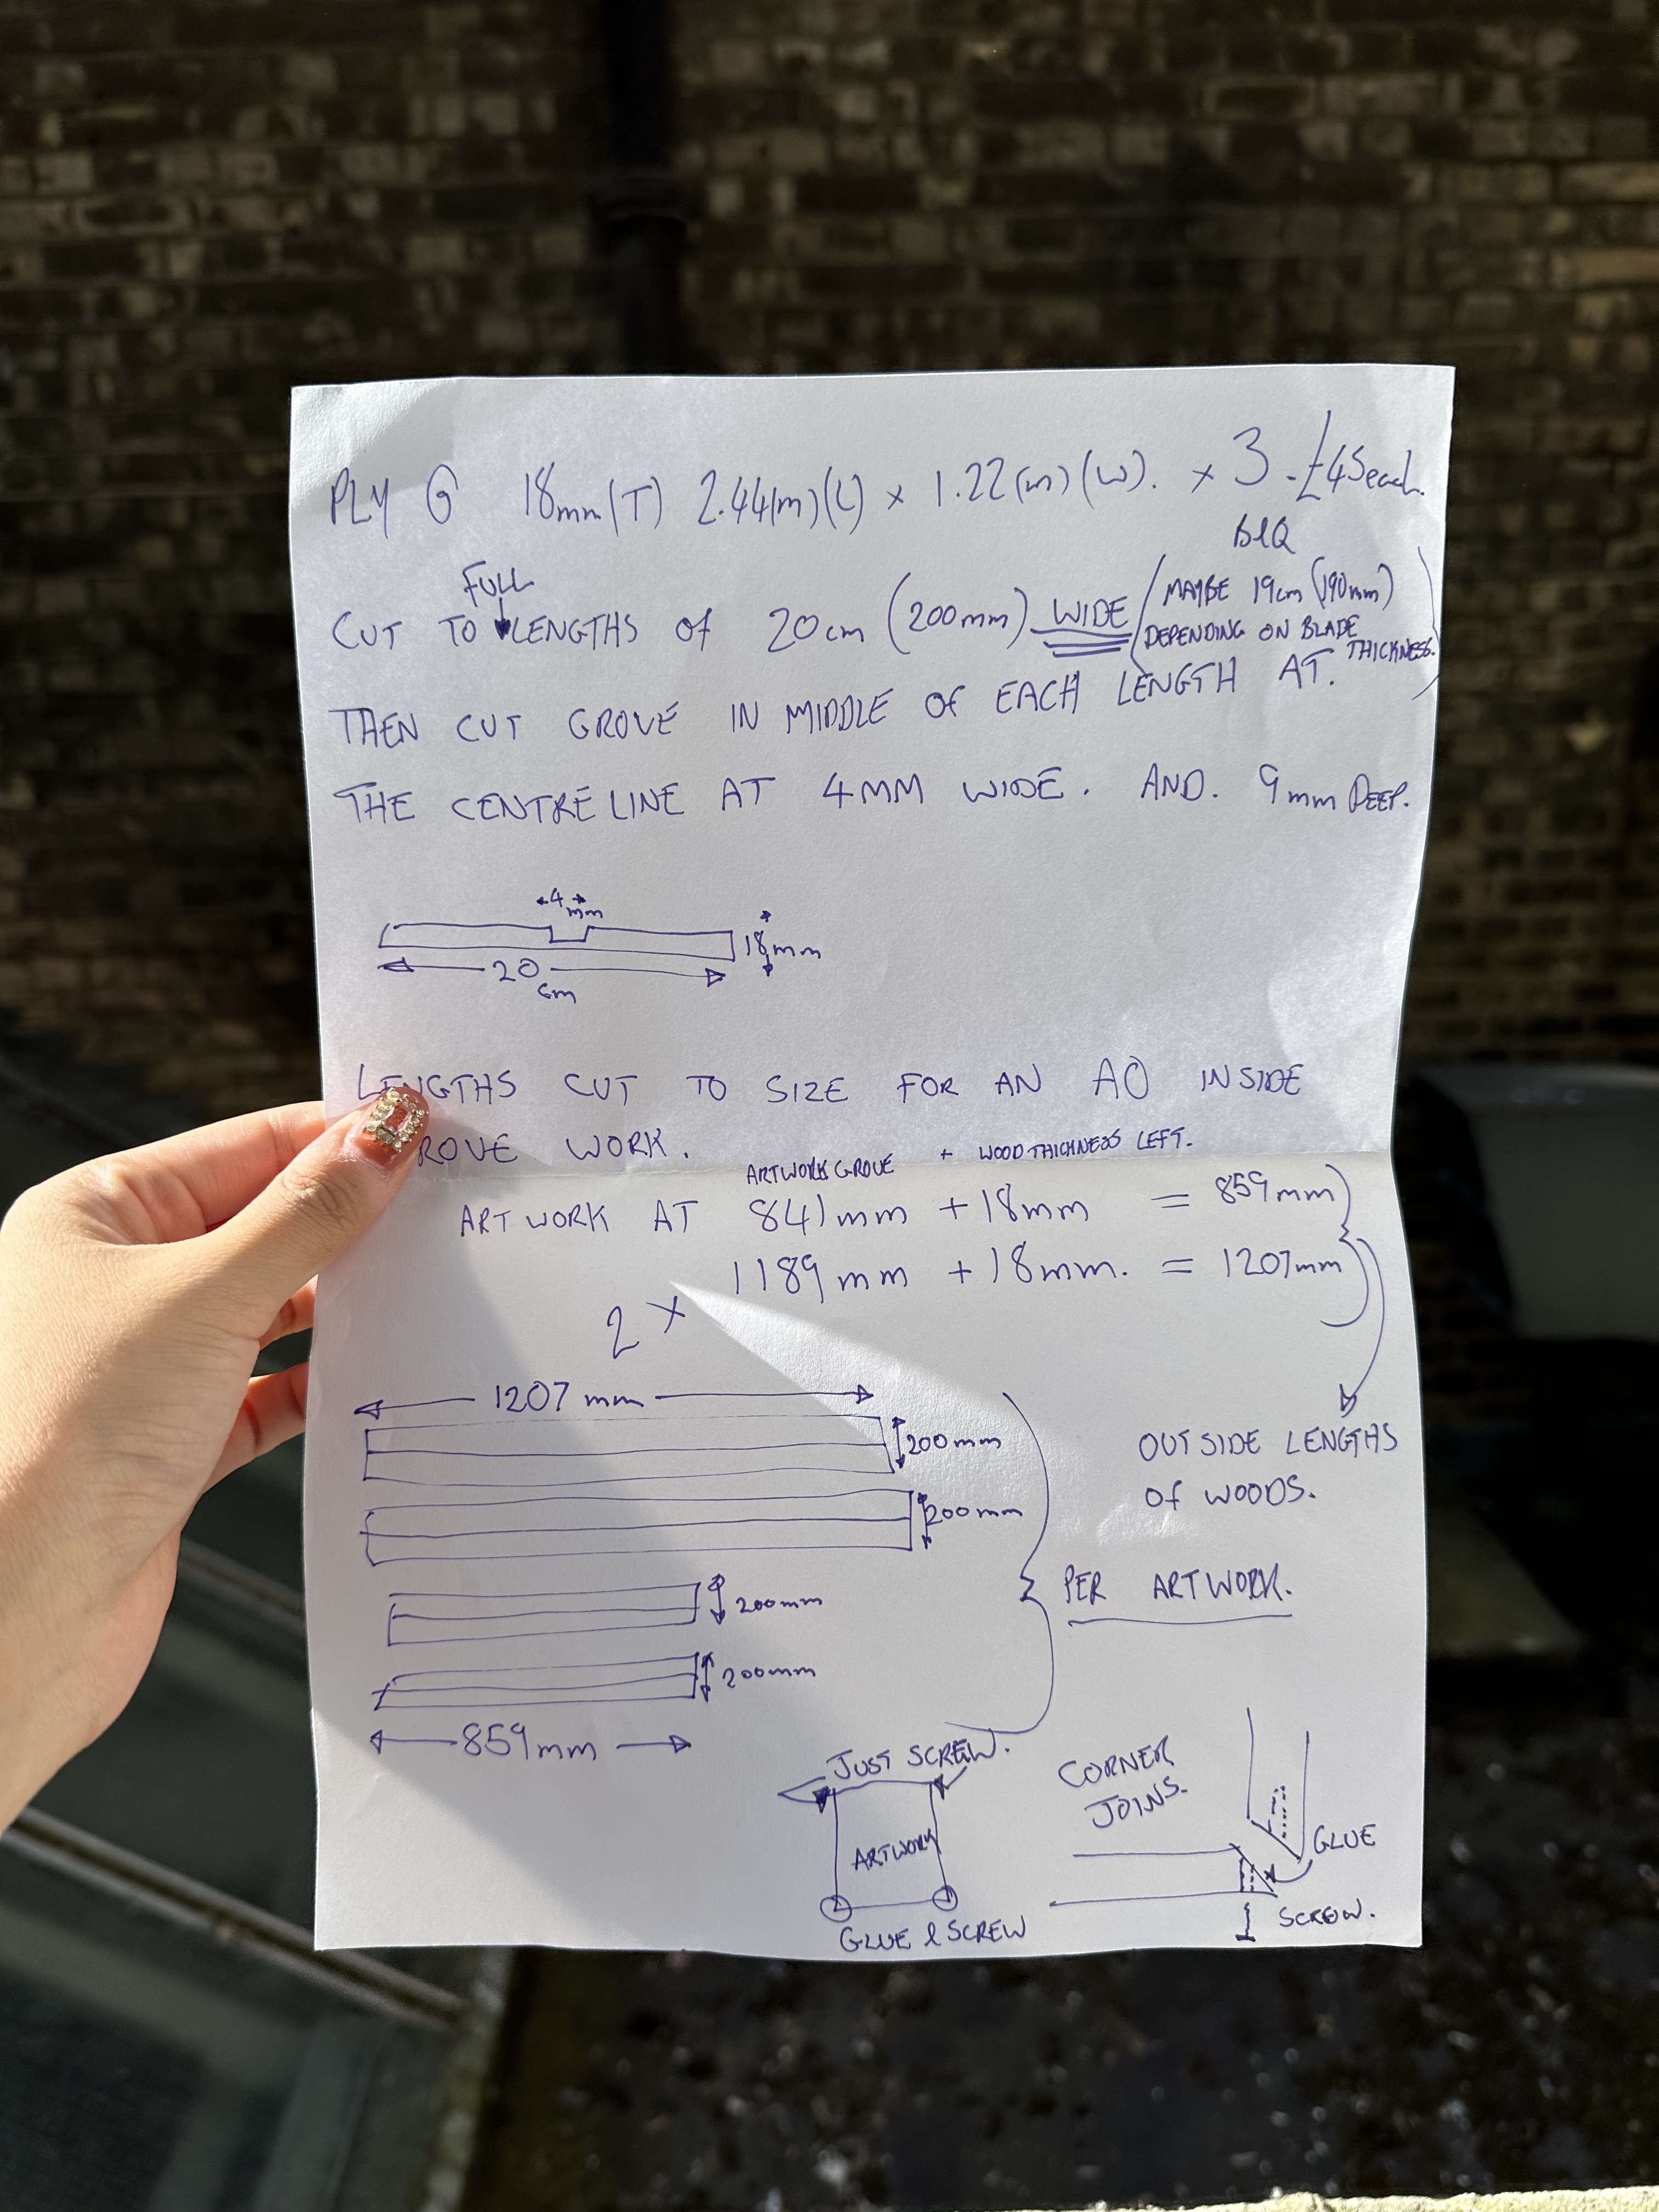 PLY G 18mm (T) 2.44(m)(L) x 1.22(m)(W). x 3 - £45each.
B&Q
FULL
CUT TO LENGTHS OF 20cm (200mm) WIDE (MAYBE 19cm (190mm)
DEPENDING ON BLADE
THICKNESS.)
THEN CUT GROVE IN MIDDLE OF EACH LENGTH AT.
THE CENTRE LINE AT 4MM WIDE. AND. 9mm DEEP.
4
mm
18mm
20
cm
LENGTHS CUT TO SIZE FOR AN A0 INSIDE
ROVE WORK.
ARTWORK GROVE + WOOD THICHNESS LEFT.
ARTWORK AT 841mm +18mm = 859mm
1189mm +18mm. = 1207mm
2 x
1207 mm
200mm
OUTSIDE LENGTHS
OF WOODS.
200mm
PER ARTWORK.
200mm
200mm
859mm
JUST SCREW.
CORNER
JOINS.
ARTWORK
GLUE
GLUE & SCREW
SCREW.